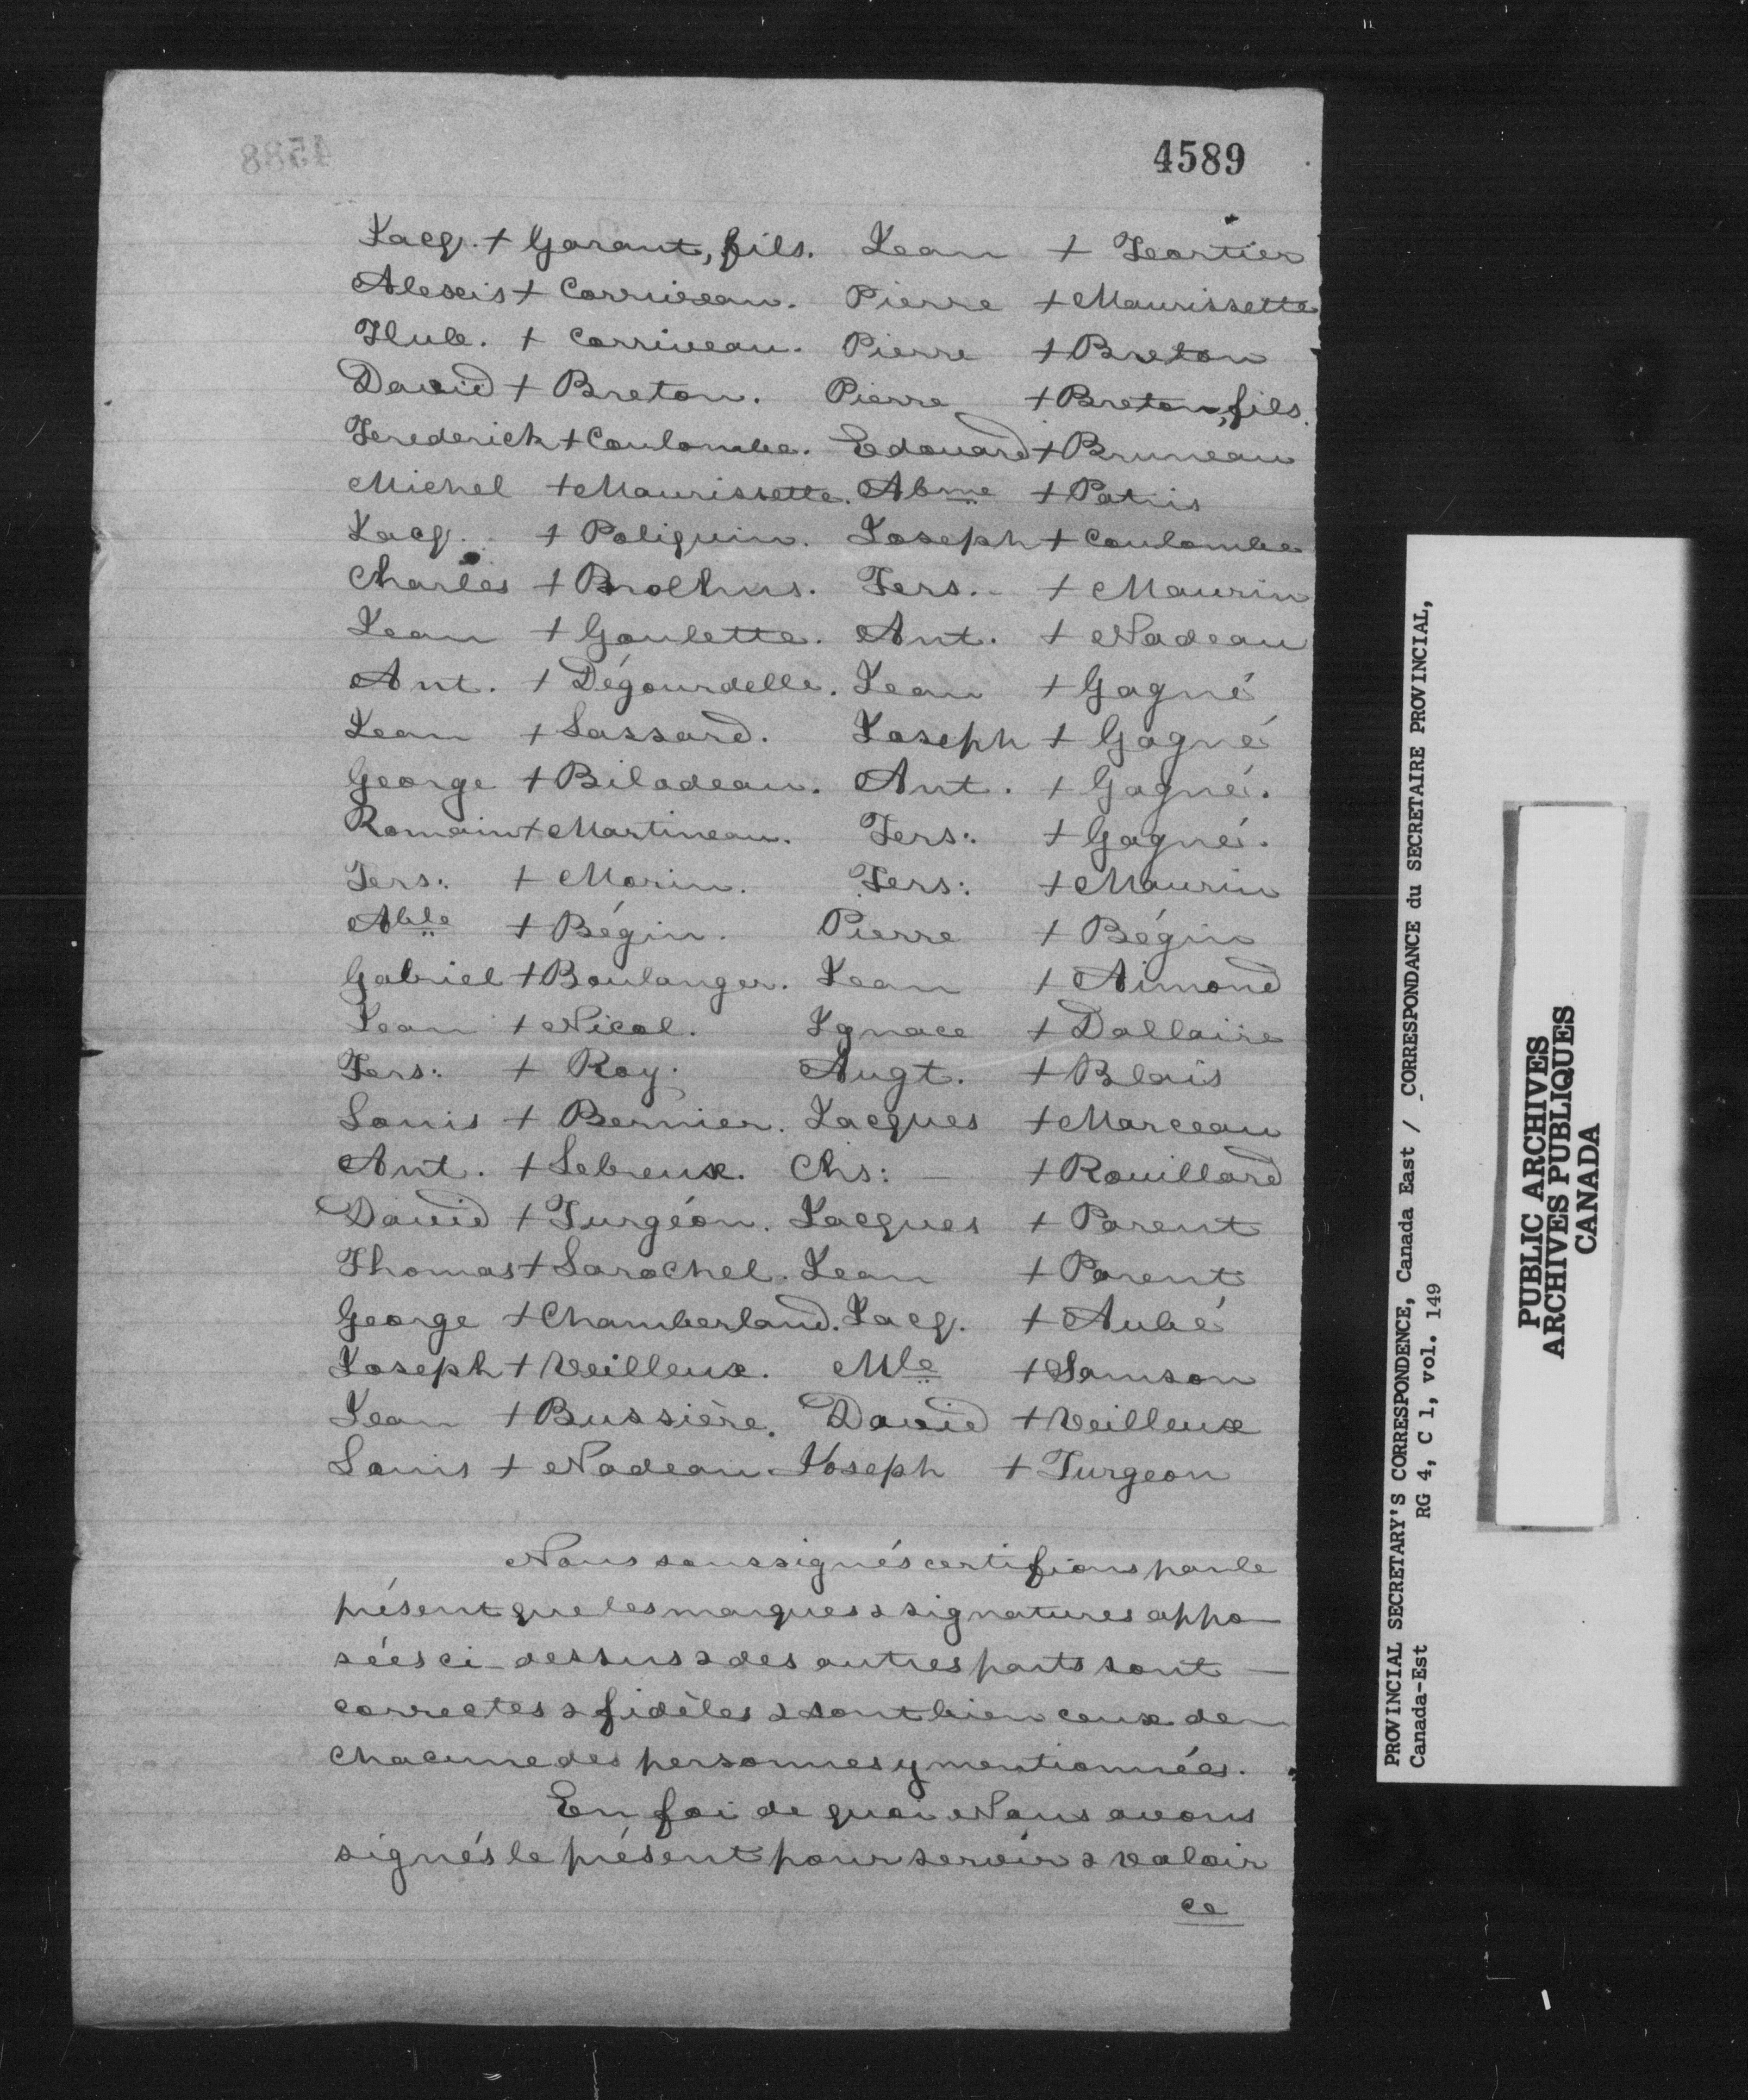 4589
Jacq. + Garant, fils. Jean + Feortier
Alexis + Corriveau. Pierre + Maurissette
Hub. + Corriveau. Pierre + Breton
David + Breton. Pierre + Breton, fils.
Frederick + Coulombe. Edouard + Bruneau
Michel + Maurissette. Abme + Patris
Jacq. + Poliquin. Joseph + Coulombe
Charles + Brochus. Frs. + Maurin
Jean + Goulette. Ant. + Nadeau
Ant. + Dégourdelle. Jean + Gagné
Jean + Lassard. Joseph + Gagné
George + Bilodeau. Ant. + Gagné.
Romain + Martineau. Frs: + Gagné.
Frs: + Morin. Frs: + Maurin
Able + Bégin. Pierre + Bégin
Gabriel + Boulanger. Jean + Aimond
Jean + Nicol. Ignace + Dallaire
Frs: + Roy. Augt. + Blais
Louis + Bernier. Jacques + Marceau
Ant. + Lebreux. Chs: — + Rouillard
David + Turgéon. Jacques + Parent
Thomas + Larochel. Jean + Parent
George + Chamberland. Jacq. + Aubé
Joseph + Veilleux. Mle + Samson
Jean + Bussière. David + Veilleux
Louis + Nadeau. Joseph + Turgeon
Nous soussignés certifions par le
présent que les marques & signatures appo-
sées ci-dessus & des autres parts sont —
correctes & fidèles & sont bien ceux de
chacune des personnes y mentionnées.
En foi de quoi Nous avons
signés le présent pour servir & valoir
ce
PROVINCIAL SECRETARY'S CORRESPONDENCE, Canada East / CORRESPONDANCE du SECRETAIRE PROVINCIAL,
Canada-Est RG 4, C 1, vol. 149
PUBLIC ARCHIVES
ARCHIVES PUBLIQUES
CANADA